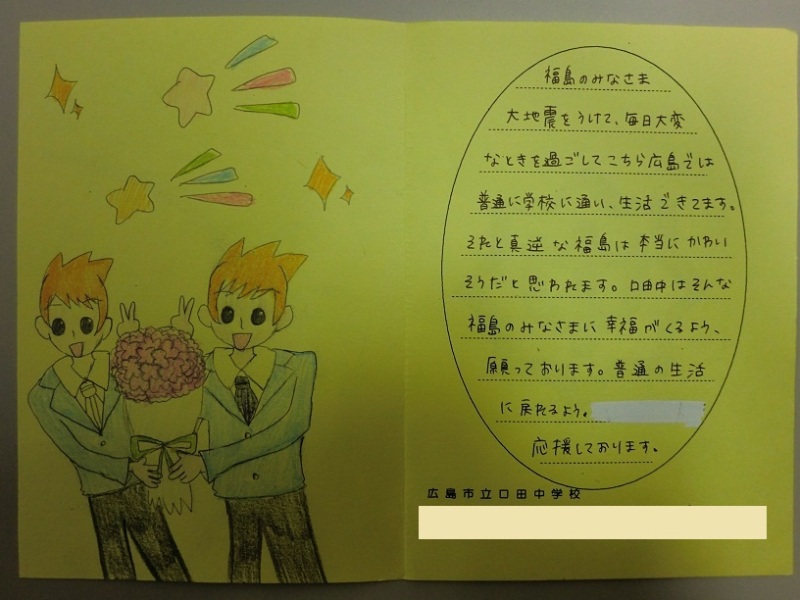 福島のみなさま
大地震をうけて、毎日大変
なときを過ごしてこちら広島では
普通に学校に通い、生活できてます。
それと真逆な福島は本当にかわい
そうだと思われます。口田中はそんな
福島のみなさまに幸福がくるよう、
願っております。普通の生活
に戻れるよう。
応援しております。
広島市立口田中学校